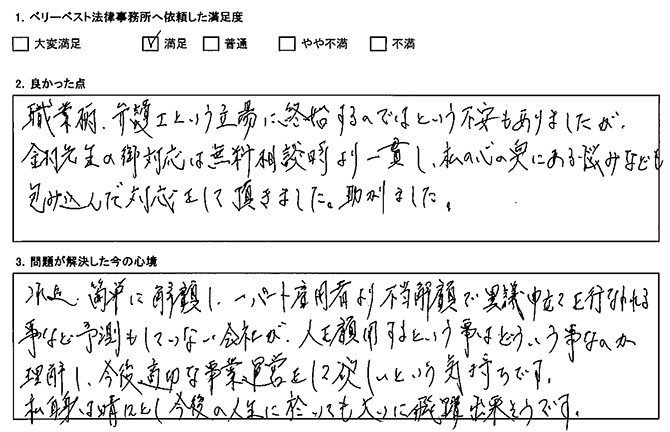 1. ベリーベスト法律事務所へ依頼した満足度
大変満足 満足 普通 やや不満 不満
2. 良かった点
職業柄、弁護士という立場に終始するのではという不安もありましたが、
金村先生の御対応は無料相談時より一貫し、私の心の奥にある悩みなども
包み込んだ対応をして頂きました。助かりました。
3. 問題が解決した今の心境
簡単に解雇し、一パート雇用者より不当解雇で異議申立てを行なわれる
事など予測もしていない会社が、人を雇用するという事はどういう事なのか
理解し、今後、適切な事業運営をして欲しいという気持ちです。
私自身は晴々とし今後の人生に於いても大いに飛躍出来そうです。